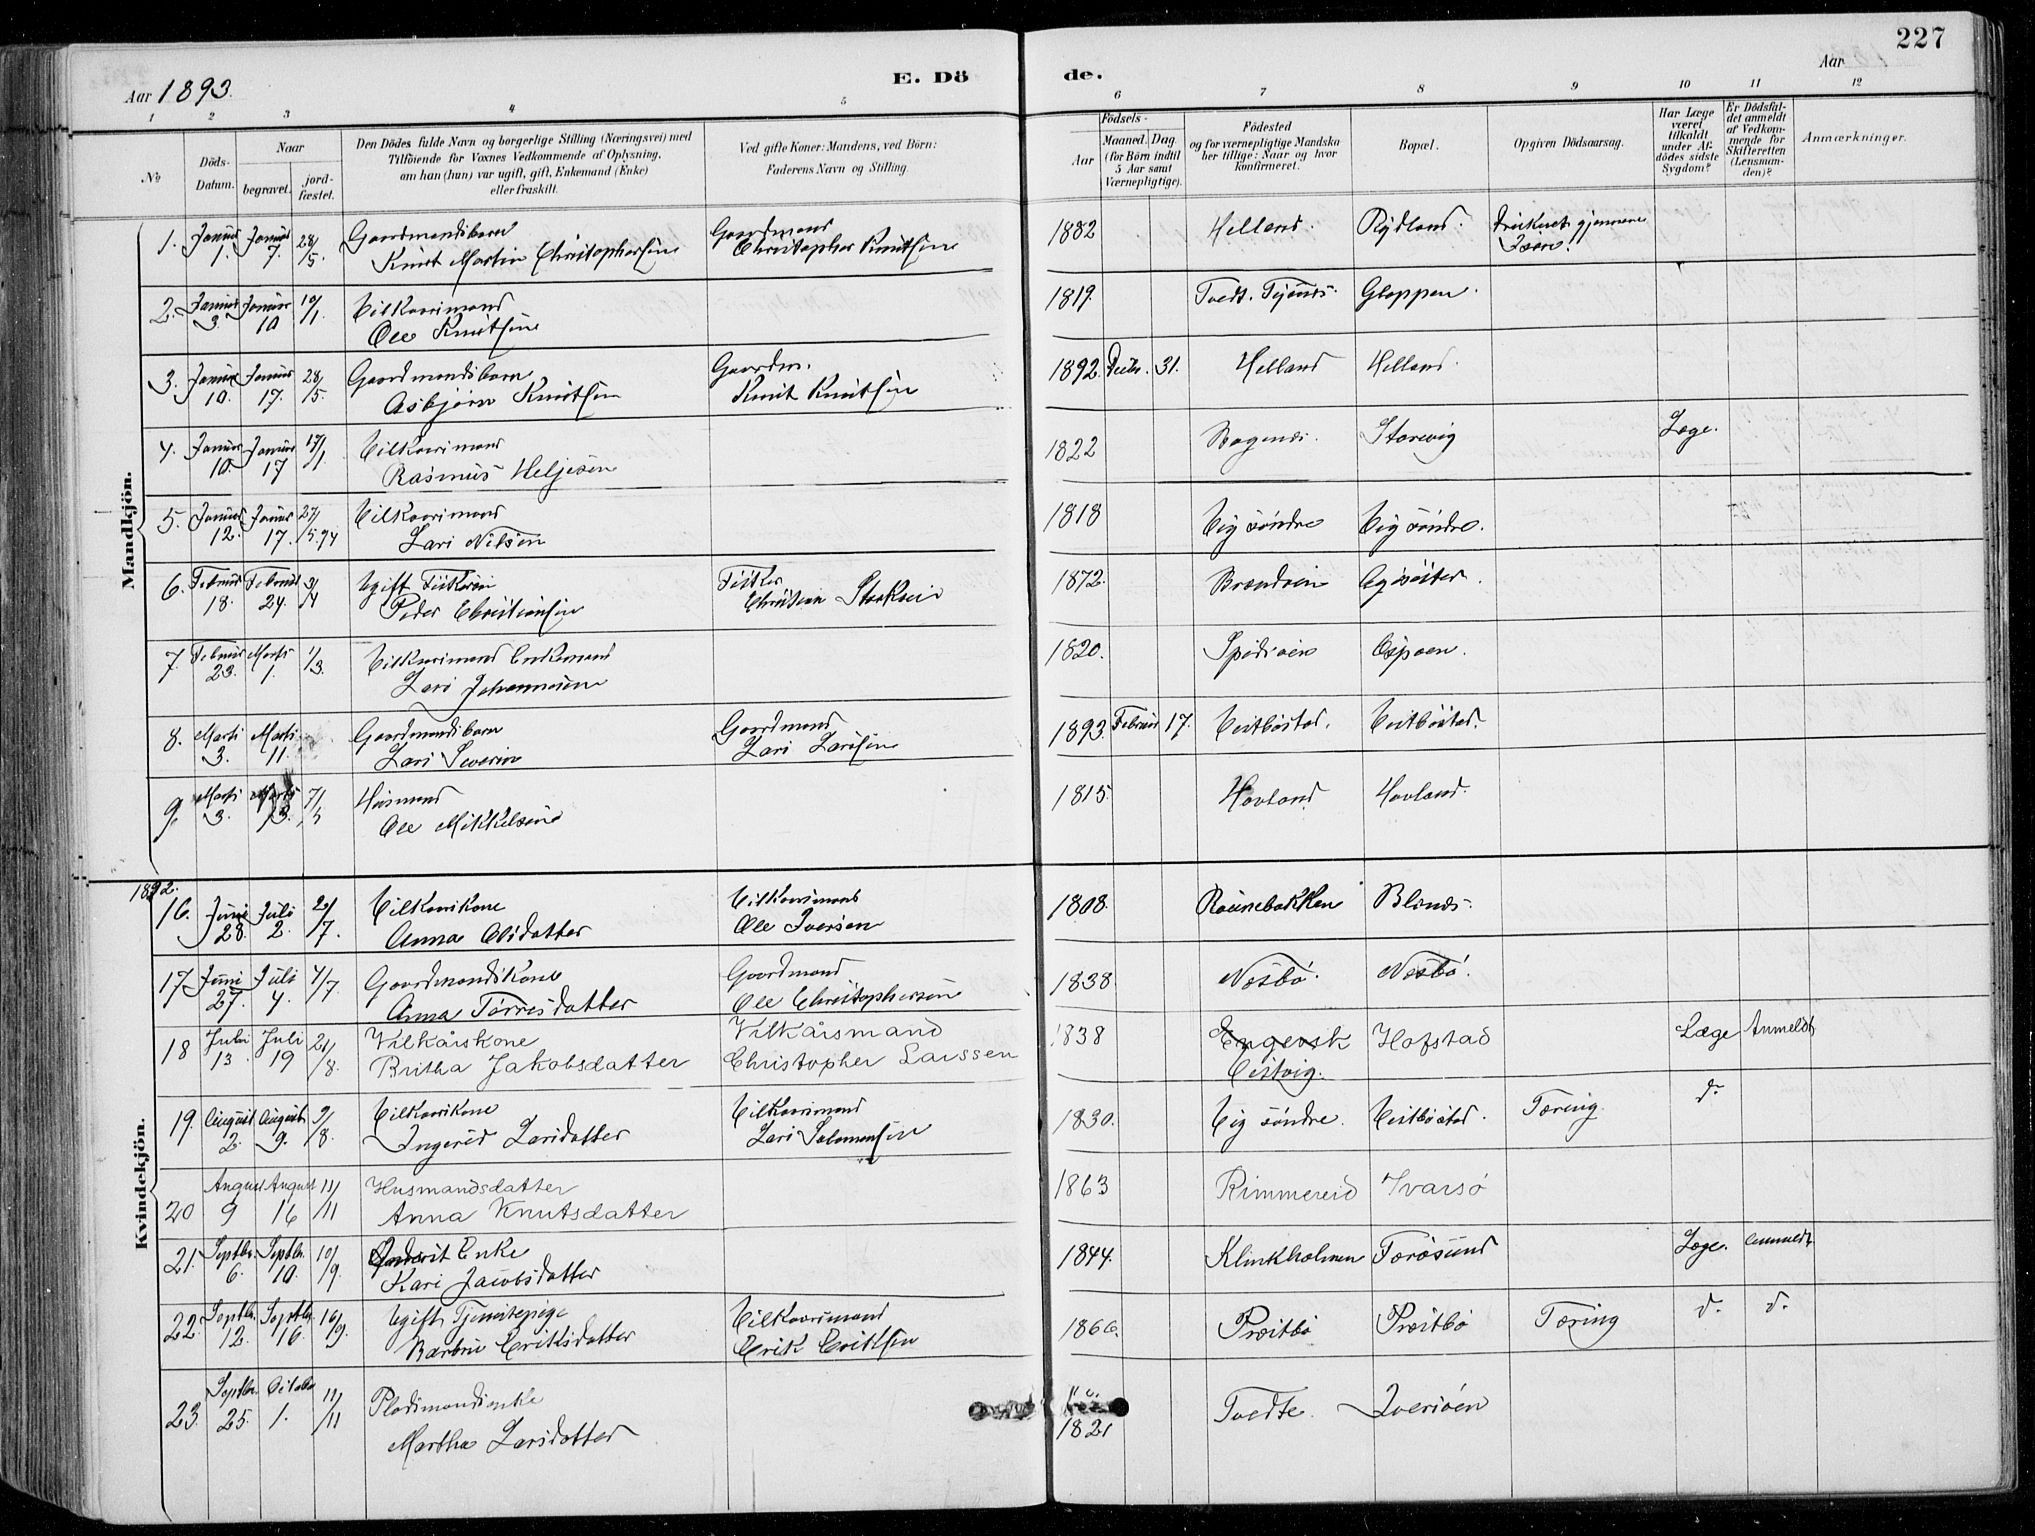 227
Aar 1893.
E. Dö de.
Aar
1 2 3 4 5 6 7 8 9 10 11 12
No
Döds-Datum.
Naar
begravet.
jord-fæstet.
Den Dödes fulde Navn og borgerlige Stilling (Næringsvei) med
Tilföiende for Voxnes Vedkommende af Oplysning,
om han (hun) var ugift, gift, Enkemand (Enke)
eller fraskilt.
Ved gifte Koner: Mandens, ved Börn:
Faderens Navn og Stilling.
Födsels-
Aar
Maaned. Dag
(for Börn indtil
5 Aar samt
Værnepligtige).
Födested
og for værnepligtige Mandska
ber tillige: Naar og hvor
konfirmeret.
Bopæl.
Opgiven Dödsaarsag.
Har Læge
været
tilkaldt
under Af-
dödes sidste
Sygdom?
Er Dödsfal-
det anmeldt
af Vedkom-
mende for
Skifteretten
(Lensman-
den)?
Anmærkninger.
Mandkjön.
1. Januar 1. Januar 7. 28/5. Gaardmandsbarn Gaardmand 1882 Helland. Rydland.
Knut Martin Christophersen Christopher Knutsen
2. Januar 3. Januar 10 10/1. Vilkaarsmand 1819. Tvedt. Tysnæs. Gloppen.
Ole Knutsen
3. Januar 10. Januar 17. 28/5. Gaardmandsbarn Gaardm. 1892. Decbr. 31. Helland Helland.
Asbjørn Knutsen Knut Knutsen
4. Januar 10. Januar 17 17/1 Vilkaarsmand 1822 Storevig Læge.
Rasmus Heljesen
5. Januar 12. Januar 17. 27/5.94 Vilkaarsmand 1818 Vig søndre Vig søndre.
Lars Nilsen
6. Februar 18. Februar 24. Ugift Fisker 1872. Brandøen
Peder Christiansen Christian
7 Februar 23. Marts 1. 1/3. Vilkaarsmand Enkemand 1820. Ospøen.
Lars Johannesen
8. Marts 3. Marts 11. Gaardmandsbarn Gaardmand 1893. Februar 17. Vestbøstad. Vestbøstad.
Lars Severin Lars Larsen
9. Marts 3. Marts Husmand 1815. Hovland Hovland.
Ole Mikkelsen
Kvindekjön.
1892.
16. Juni 28. Juli 2. 2/7. Vilkaarskone Vilkaarsmand 1808. Raunebakken Blænes.
Anna Olsdatter Ole Iversen
17 Juni 27. Juli 4. 4/7. Gaardmandskone Gaardmand 1838. Nesbø. Nesbø.
Anna Tørresdatter Ole Christophersen
18 Juli 13. Juli 19 21/8. Vilkårskone Vilkårsmand 1838 Engevik Hofstad Læge Anmeldt
Britha Jakobsdatter Christopher Larssen Vestvig.
19. August 2. August 9. 9/8. Vilkaarskone Vilkaarsmand 1830. Vig søndre. Vestbøstad. Tæring. d.
Ingerid Larsdatter Lars Salomonsen
20 August 9 August 16 11/11 Husmandsdatter 1863 Rimmereid Ivarsø
Anna Knutsdatter
21. Septbr. 6. Septbr. 10. 10/9. Enke 1844. Klinkholmen Torøsund Læge. Anmeldt
Kari Jacobsdatter
22. Septbr. 12. Septbr. 16. 16/9. Ugift Tjenestepige Vilkaarsmand 1866. Præstbø Præstbø Tæring d. d.
Barbru Eriksdatter Erik Eriksen
23. Septbr. 25. October 1. 11/11 Pladsmandsenke 1821 Tvedte. Iversøen
Martha Larsdatter